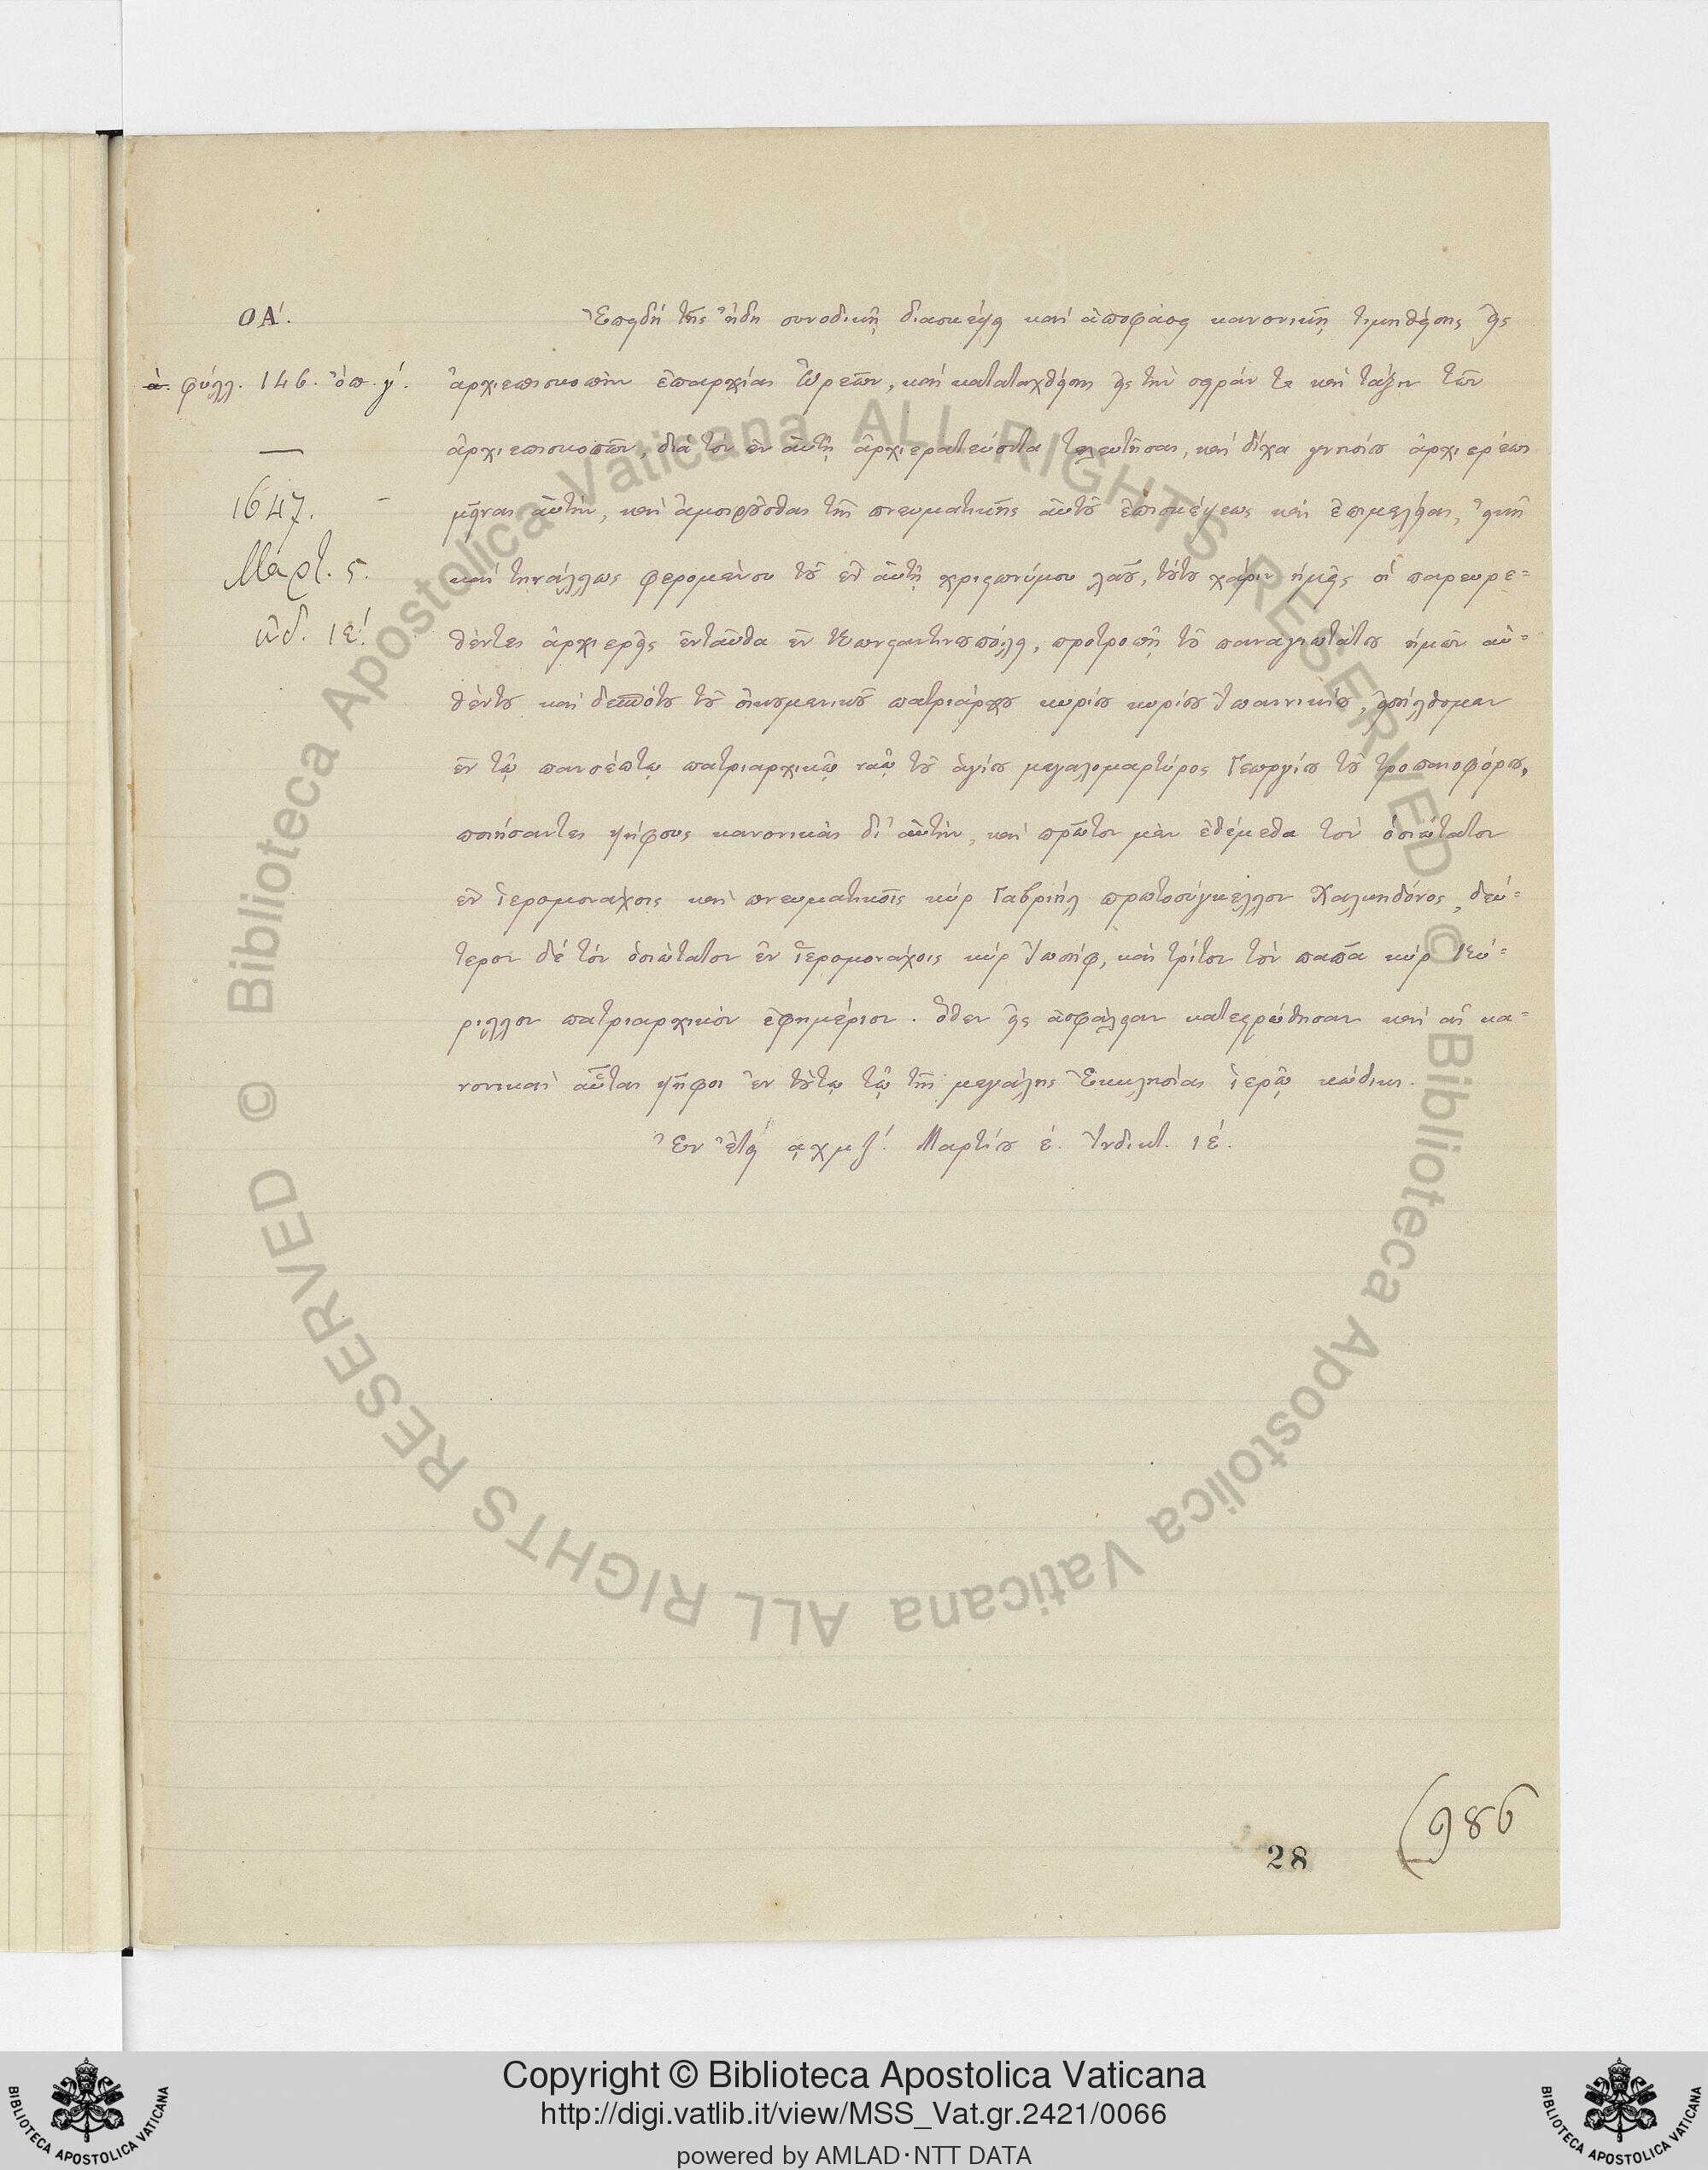 ΟΑ΄.
ά. φύλλ. 146. ὄπ. γ΄.
1647.
Μαρτ. ς.
ἰνδ. ιε΄.
Ἐπειδὴ τῆς ἤδη συνοδικῇ διασκέψει καὶ ἀποφάσει κανονικῇ τιμηθείσης εἰς
ἀρχιεπισκοπὴν ἐπαρχίας Ὠρεῶν, καὶ καταταχθείσης εἰς τὴν σειράν τε καὶ τάξιν τῶν
ἀρχιεπισκοπῶν, διὰ τὸν ἐν αὐτῇ ἀρχιερατεύοντα τελευτῆσαι, καὶ δίχα γνησίου ἀρχιερέως
μεῖναι αὐτήν, καὶ ἀμοιρεῖσθαι τῆς πνευματικῆς αὐτοῦ ἐπισκέψεως καὶ ἐπιμελείας,
καὶ τηνάλλως φερομένου τοῦ ἐν αὐτῇ χριστωνύμου λαοῦ, τούτου χάριν ἡμεῖς οἱ παρευρε=
θέντες ἀρχιερεῖς ἐνταῦθα ἐν Κωνσταντινουπόλει, προτροπῇ τοῦ παναγιωτάτου ἡμῶν αὐ=
θέντου καὶ δεσπότου τοῦ οἰκουμενικοῦ πατριάρχου κυρίου κυρίου Ἰωαννικίου, εἰσήλθομεν
ἐν τῷ πανσέπτῳ πατριαρχικῷ ναῷ τοῦ ἁγίου μεγαλομαρτύρος Γεωργίου τοῦ τροπαιοφόρου,
ποιήσαντες ψήφους κανονικὰς δι᾽ αὐτήν, καὶ πρῶτον μὲν ἐθέμεθα τὸν ὁσιώτατον
ἐν ἱερομονάχοις καὶ πνευματικοῖς κὺρ Γαβριὴλ πρωτοσύγκελλον Χαλκηδόνος, δεύ=
τερον δὲ τὸν ὁσιώτατον ἐν ἱερομονάχοις κὺρ Ἰωσήφ, καὶ τρίτον τὸν παπᾶ κὺρ Κύ=
ριλλον πατριαρχικὸν ἐφημέριον. ὅθεν εἰς ἀσφάλειαν κατεστρώθησαν καὶ αἱ κα=
νονικαὶ αὗται ψῆφοι ἐν τούτῳ τῷ τῆς μεγάλης Ἐκκλησίας ἱερῷ κώδικι.
Ἐν ἔτει αχμζ΄. Μαρτίου έ. Ἰνδικτ. ιέ.
28
986
© Biblioteca Apostolica Vaticana ALL RIGHTS RESERVED © Biblioteca Apostolica Vaticana ALL RIGHTS RESERVED
Copyright © Biblioteca Apostolica Vaticana
http://digi.vatlib.it/view/MSS_Vat.gr.2421/0066
powered by AMLAD·NTT DATA
BIBLIOTECA APOSTOLICA VATICANA
BIBLIOTECA APOSTOLICA VATICANA